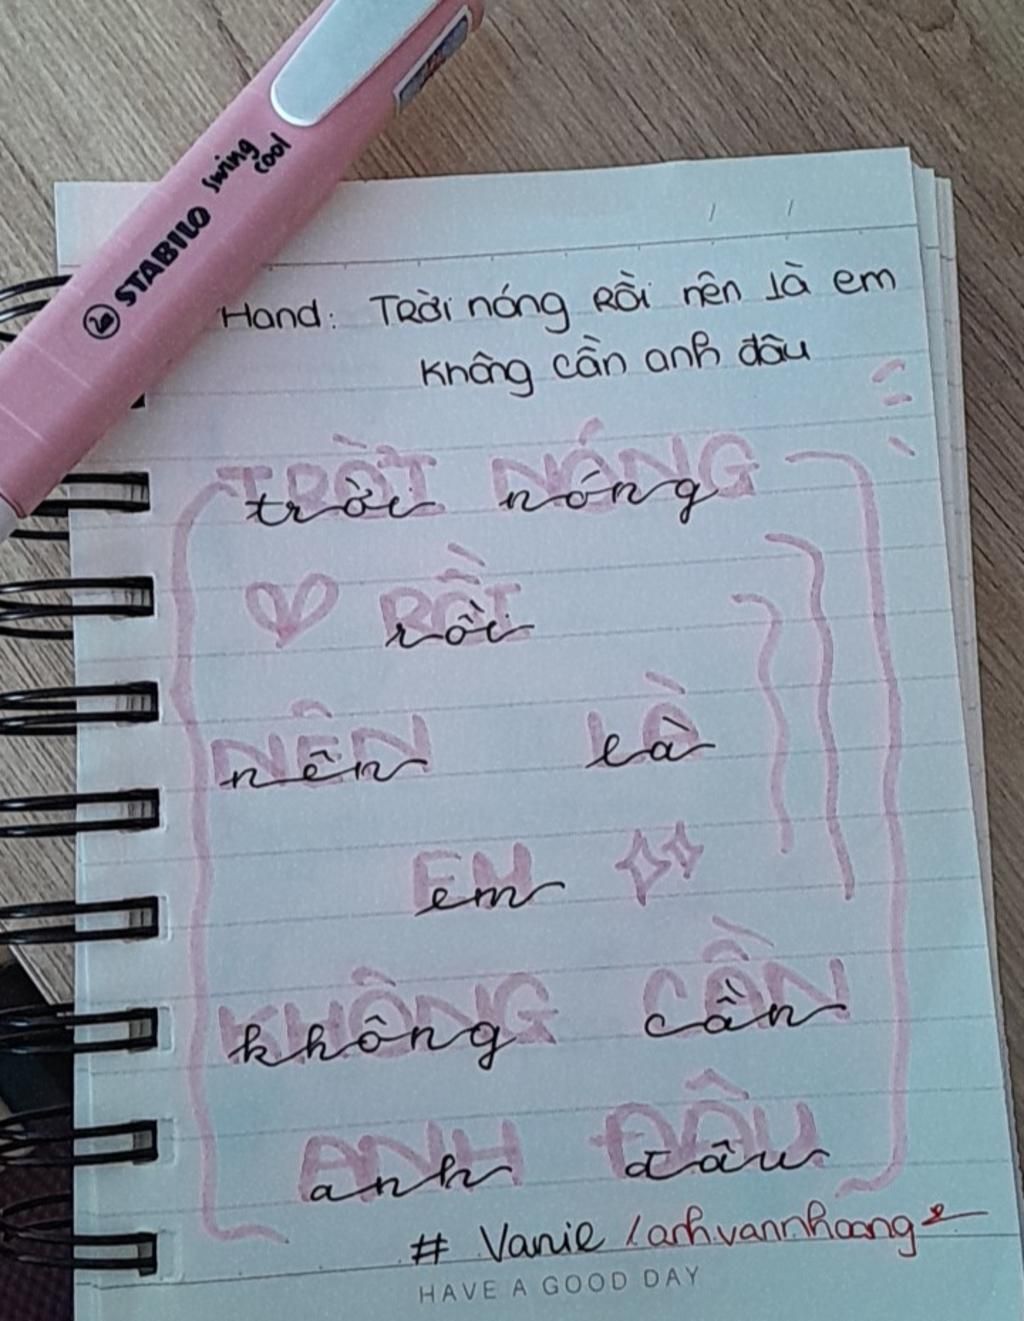 STABILO swing cool
/ /
Hand: Trời nóng rồi nên là em
không cần anh đâu
TRỜI NÓNG
trời nóng
RỒI
rồi
NÊN LÀ
nên là
EM
em
KHÔNG CẦN
không cần
ANH ĐÂU
anh đâu
# Vanie /anhvannhoang
HAVE A GOOD DAY